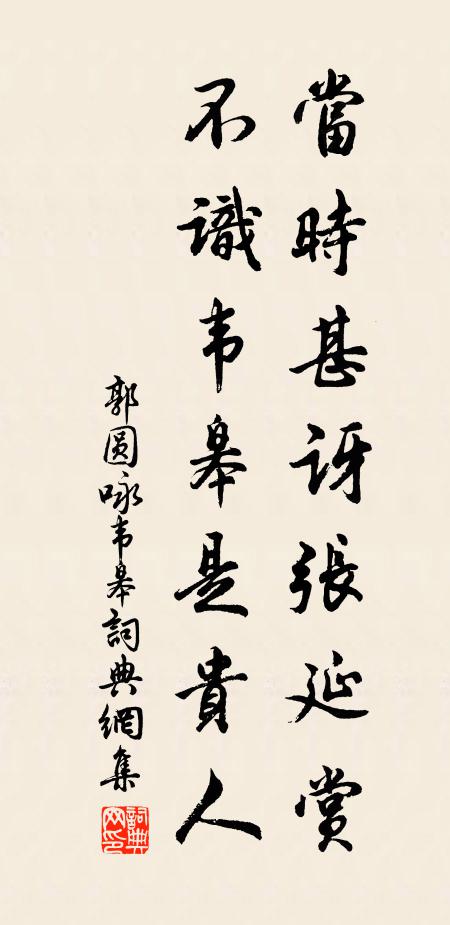 當時甚訝張延賞
不識韦皋是貴人
郭圓咏韦皋詞典網集
詞典网印